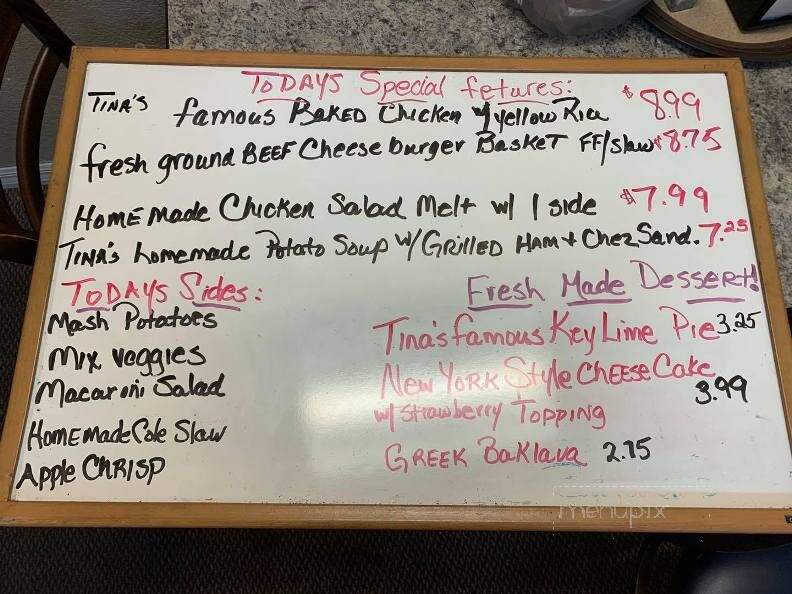 TODAYS Special fetures:
TINA'S famous BAKED Chicken w/ yellow Rice $8.99
fresh ground BEEF Cheese burger Basket FF/slaw $8.75
HOMEmade Chicken Salad Melt w/ 1 side $7.99
TINA'S homemade Potato Soup w/ GRILLED HAM + Chez Sand. 7.25
TODAYS Sides:
Mash Potatoes
Mix veggies
Macaroni Salad
HOMEmade Cole Slaw
Apple CHRISP
Fresh Made Dessert!
Tina's famous Key Lime Pie 3.25
New YORK Style CHEESE Cake 3.99
w/ Strawberry TOPPING
GREEK Baklava 2.75
menupix